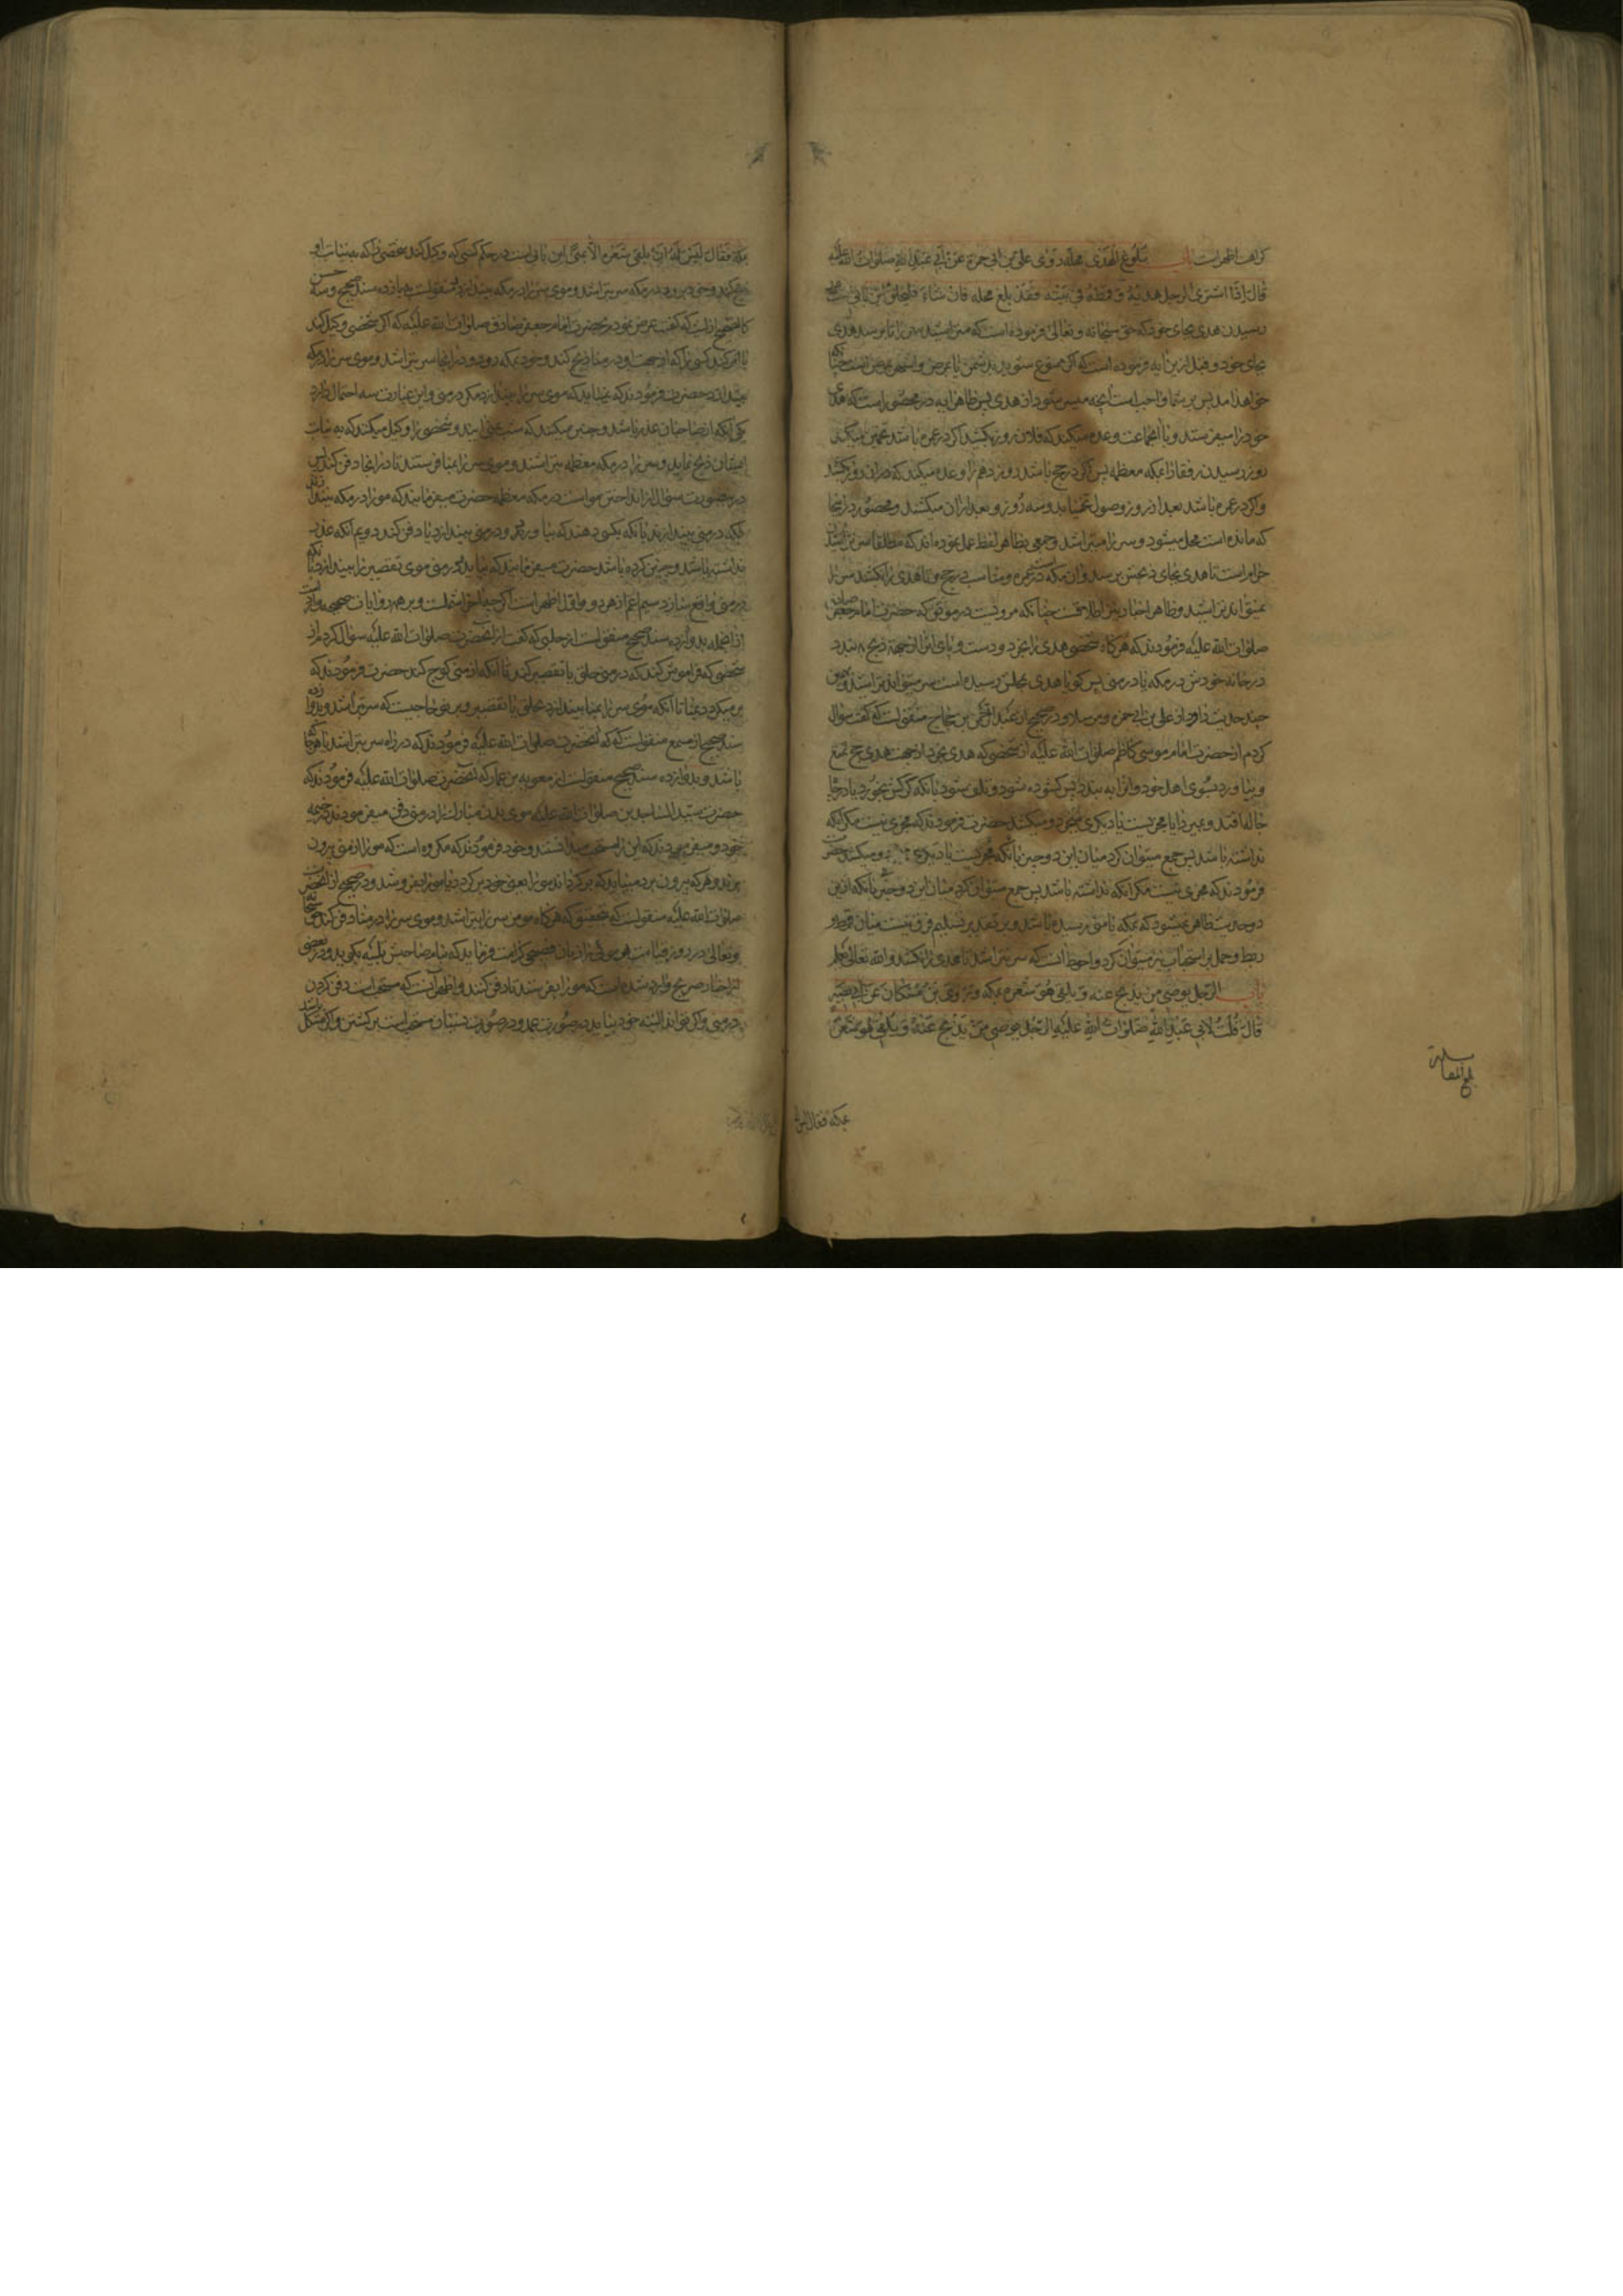 کراهت اظهر است باب بلوغ الهدی محله روی علی بن ابی حمزة عن ابی عبد الله صلوات الله علیه
قال اذا اشتری الرجل هدیه و قمطه فی بیته فقد بلغ محله فان شاء فلیحلق این بابی است
رسیدن هدی بجای خود که حق سبحانه و تعالی فرموده است که متراشید سر را تا برسد هدی
بجای خود و قبل ازین آیه فرموده است که اگر ممنوع شوید
خواهد آمد پس بر شما واجب است آنچه میسر شود از هدی پس ظاهر آیه در محصور است که هدی
خود را میفرستد و با آنجماعت وعده میکند که فلان روز بکشید اگر در عمره باشد تخمین میکند
روز رسیدن رفقا را بمکه معظمه پس اگر در حج باشد روز دهم را وعده میکند که در آن روز بکشند
و اگر در عمره باشد بعد از روز وصول تخمینا بدو سه روز و بعد از آن میکشند و محصور در آنجا
که مانده است محل میشود و سر را میتراشد و جمعی بظاهر لفظ عمل نموده‌اند که مطلقا سر تراشیدن
حرام است تا هدی بجای ذبحش برسد و آن مکه است در عمره و منا است در حج و تا هدی را نکشند سر را
نمیتوانند تراشید و ظاهر اخبار بر اطلاقست چنانکه مرویست در موثق که حضرت امام جعفر صادق
صلوات الله علیه فرمودند که هرگاه شخصی هدی را بخرد و دست و پای او را از جهة ذبح ببندد
در خانه خودش در مکه یا در منی پس گویا هدی بمحلش رسیده است سر میتواند تراشید و همین
چند حدیث دارد از علی بن ابی حمزه و مرسلا و در صحیح از عبد الرحمن بن حجاج منقولست که گفت سؤال
کردم از حضرت امام موسی کاظم صلوات الله علیه از شخصی که هدی بخرد از جهت هدی حج تمتع
و بیاورد بسوی اهل خود و او را ببندد پس گشوده شود و تلف شود
ندانسته باشد پس جمع میتوان کرد میان این دو حدیث
فرمودند که مجزی نیست مگر آنکه نداشته باشد پس جمع میتوان کرد میان این دو حدیث بآنکه ازین
دو حدیث ظاهر نمیشود که بمکه یا منی رسیده باشد و بر تقدیر تسلیم فرق نیست میان
ربط و حمل بر استحباب نیز میتوان کرد و احوط آنست که سر نتراشد تا هدی را نکشند و الله تعالی یعلم
باب الرجل یوصی من یذبح عنه و یلقی هو شعره بمکه و روی ابن مسکان عن ابی بصیر
قال قلت لابی عبد الله صلوات الله علیه الرجل یوصی من یذبح عنه و یلقی هو شعره
بلغ المقابلة
بمکه فقال لیس
مکة فقال لیس له ان یلقی شعره الا بمنی این بابی است در حکم کسی که وکیل کند شخصی را که به نیابت او
ذبح کند و خود برود در مکه سر بتراشد و موی سر را در مکه بیندازد منقولست به یازده سند صحیح و سه حسن
کالصحیح از لیث که گفت عرض نمودم بحضرت امام جعفر صادق صلوات الله علیه که اگر شخصی وکیل کند
یا امر کند کسی را که از جهت او در منا ذبح کند و خود بمکه رود و در آنجا سر بتراشد و موی سر را در مکه
بیندازد حضرت فرمودند که نمیباید که موی سر را بیندازد مگر در منی و این عبارت سه احتمال دارد
یکی آنکه از صاحبان عذر باشد و چنین میکند که شب بمنی آیند و شخصی را وکیل میکند که به نیابت
ایشان ذبح نماید و سر را در مکه معظمه بتراشند و موی سر را بمنا فرستند تا در آنجا دفن کنند پس
درینصورت سؤال از انداختن مو است در مکه معظمه حضرت میفرمایند که مو را در مکه نیندازند
بلکه در منی بیندازند یا آنکه بکسی دهند که بیاورد و در منی بیندازد یا دفن کند دویم آنکه عذر
نداشته باشد و چنین کرده باشد حضرت میفرمایند که نباید که در منی موی تقصیر را بیندازد
در منی واقع سازد سیم اعم از هر دو و اول اظهر است
از آنجمله بدوازده سند صحیح منقولست از حلبی که گفت از آنحضرت صلوات الله علیه سؤال کردم از
شخصی که فراموش کند که در منی حلق یا تقصیر کند تا آنکه از منی کوچ کند حضرت فرمودند که
بر میگردد بمنا تا آنکه موی سر را بمنا بیندازد بحلق یا تقصیر و بر نو حاجیست که سر بتراشد و بدوازده
سند صحیح از مسمع منقولست که آنحضرت صلوات الله علیه فرمودند که در راه سر بتراشد یا هر کجا
باشد و بدوازده سند صحیح منقولست از معویه بن عمار که آنحضرت صلوات الله علیه فرمودند که
حضرت سید الساجدین صلوات الله علیه موی بدن مبارک را در منی دفن میفرمودند در خیمه
خود و میفرمودند که این را مستحب میدانستند و خود فرمودند که مکروه است که مو را از منی بیرون
برند و هر که بیرون برد میباید که برگرداند مو را
صلوات الله علیه منقولست که بتحقیق که هرگاه مؤمن سر را بتراشد و موی سر را در منا دفن کند حق سبحانه
و تعالی در روز قیامت هر موئی را زبان فصیحی کرامت فرماید که بنام صاحبش تلبیه بگوید و در بعضی
از اخبار صریح وارد شده است که مو را بفرستد تا دفن کنند و اظهر آنست که مستحب است دفن کردن
در منی و اگر تواند البته خود بیاید در صورت عمد و در صورت نسیان مستحب است برگشتن و اگر مشکل باشد